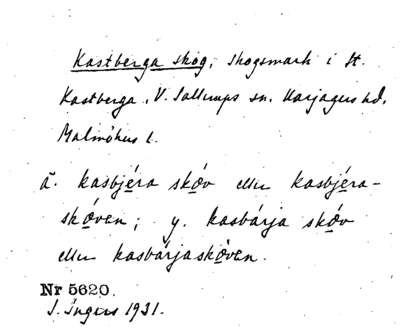 Kastberga skog, skogsmark i St.
Kastberga, V. Sallerups sn. Harjagers hd,
Malmöhus l.
ä. kasbjéra skóv eller kasbjéra-
skóven; y. kasbárja skóv
eller kasbárjaskóven.
Nr 5620.
I. Ingers 1931.